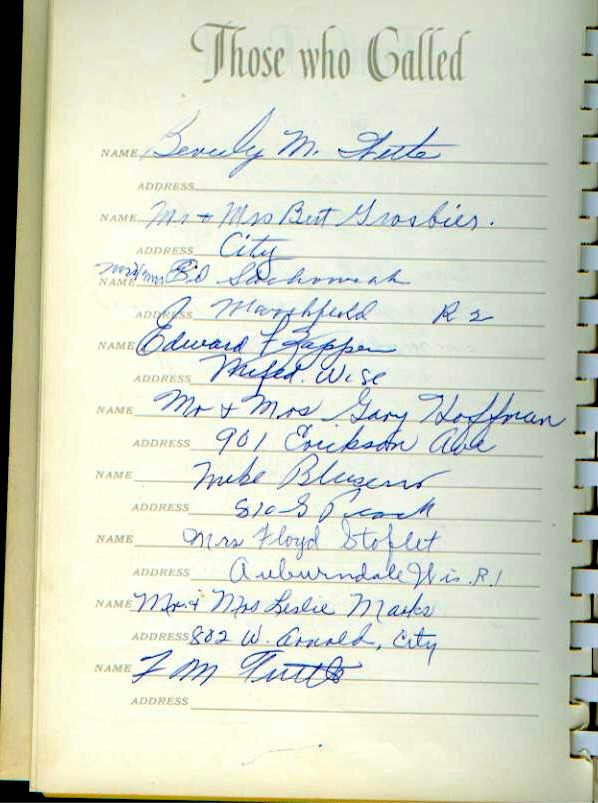 Those who Called
NAME Beverly M. Tuttle
ADDRESS
NAME Mr + Mrs Bert Grosbier.
ADDRESS City
NAME Mr + Mrs Ed
ADDRESS Marshfield R 2
NAME Edward F Zappen
ADDRESS Mfed. Wise
NAME Mr + Mrs Gary Hoffman
ADDRESS 901 Erickson Ave
NAME Mike
ADDRESS 810 S Peach
NAME Mrs Floyd Stoflet
ADDRESS Auburndale Wis. R. 1
NAME Mr. + Mrs Leslie Marks
ADDRESS 802 W. Arnold, City
NAME F M Tuttle
ADDRESS